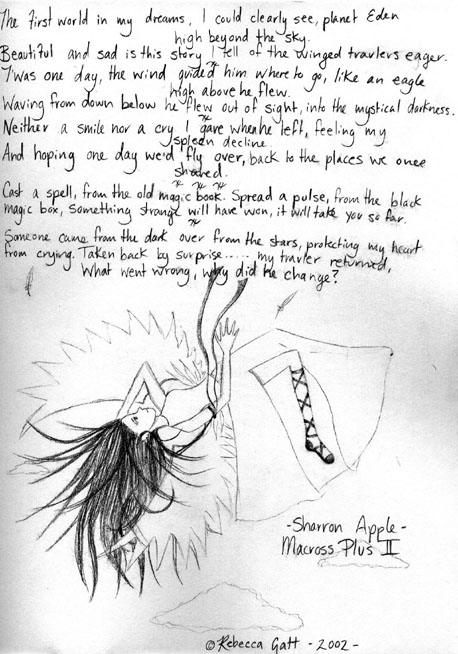 The first world in my dreams, I could clearly see, planet Eden
high beyond the sky.
Beautiful and sad is this story I tell of the winged travlers eager.
Twas one day, the wind guided him where to go, like an eagle
high above he flew.
Waving from down below he flew out of sight, into the mystical darkness.
Neither a smile nor a cry I gave when he left, feeling my
spleen decline
And hoping one day we'd fly over, back to the places we once
shared.
Cast a spell, from the old magic book. Spread a pulse, from the black
magic box, something strange will have won, it will take you so far.
Someone came from the dark over from the stars, protecting my heart
from crying. Taken back by surprise..... my travler returned,
What went wrong, why did he change?
-Sharron Apple-
Macross Plus II
© Rebecca Gatt - 2002 -